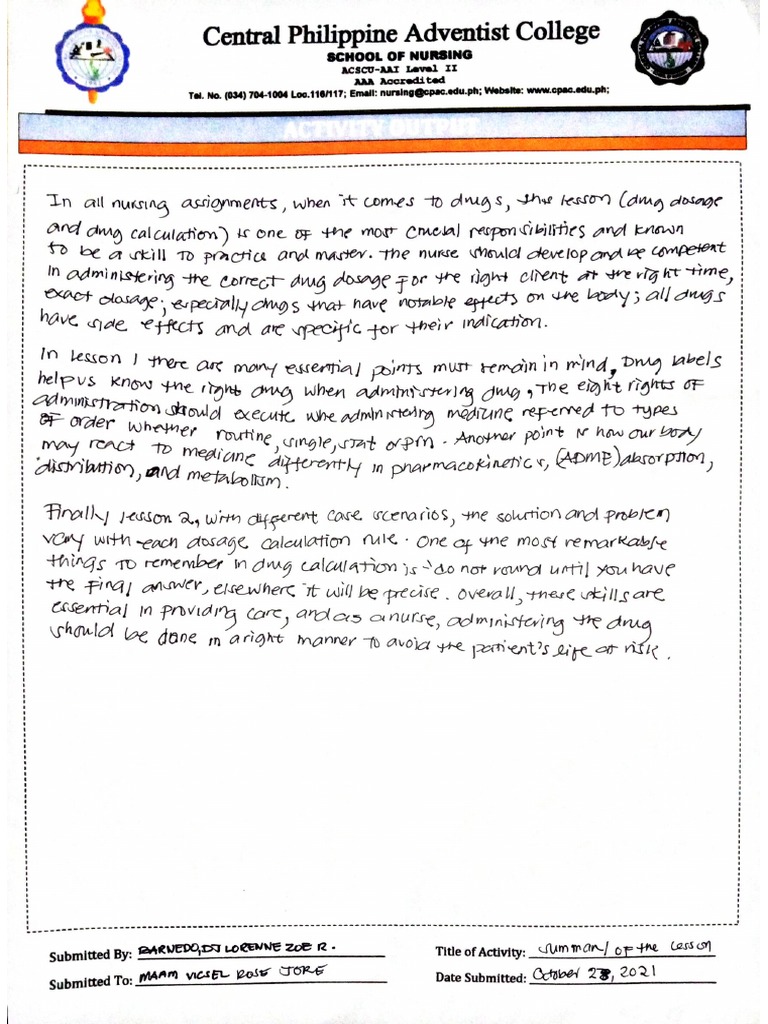 Central Philippine Adventist College
SCHOOL OF NURSING
ACSCU-AAI Level II
AAA Accredited
Tel. No. (034) 704-1004 Loc.116/117; Email: nursing@cpac.edu.ph; Website: www.cpac.edu.ph;
ACTIVITY OUTPUT
In all nursing assignments, when it comes to drugs, this lesson (drug dosage
and drug calculation) is one of the most crucial responsibilities and known
to be a skill to practice and master. The nurse should develop and be competent
in administering the correct drug dosage for the right client at the right time,
exact dosage; especially drugs that have notable effects on the body; all drugs
have side effects and are specific for their indication.
In lesson 1 there are many essential points must remain in mind, Drug labels
help us know the right drug when administering drug, The eight rights of
administration should execute whe administering medicine referred to types
of order whether routine, single, stat or prn. Another point is how our body
may react to medicine differently in pharmacokinetics, (ADME) absorption,
distribution, and metabolism.
Finally lesson 2, with different case scenarios, the solution and problem
vary with each dosage calculation rule. One of the most remarkable
things to remember in drug calculation is "do not round until you have
the final answer, elsewhere it will be precise. Overall, these skills are
essential in providing care, and as a nurse, administering the drug
should be done in a right manner to avoid the patient's life at risk.
Submitted By: BARNEDO, DJ LORENNE ZOE R.
Title of Activity: Summary of the Lesson
Submitted To: MAAM VICSEL ROSE JORE
Date Submitted: October 28, 2021